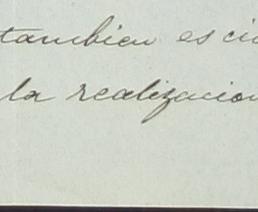 tambien es ci
la realizacion